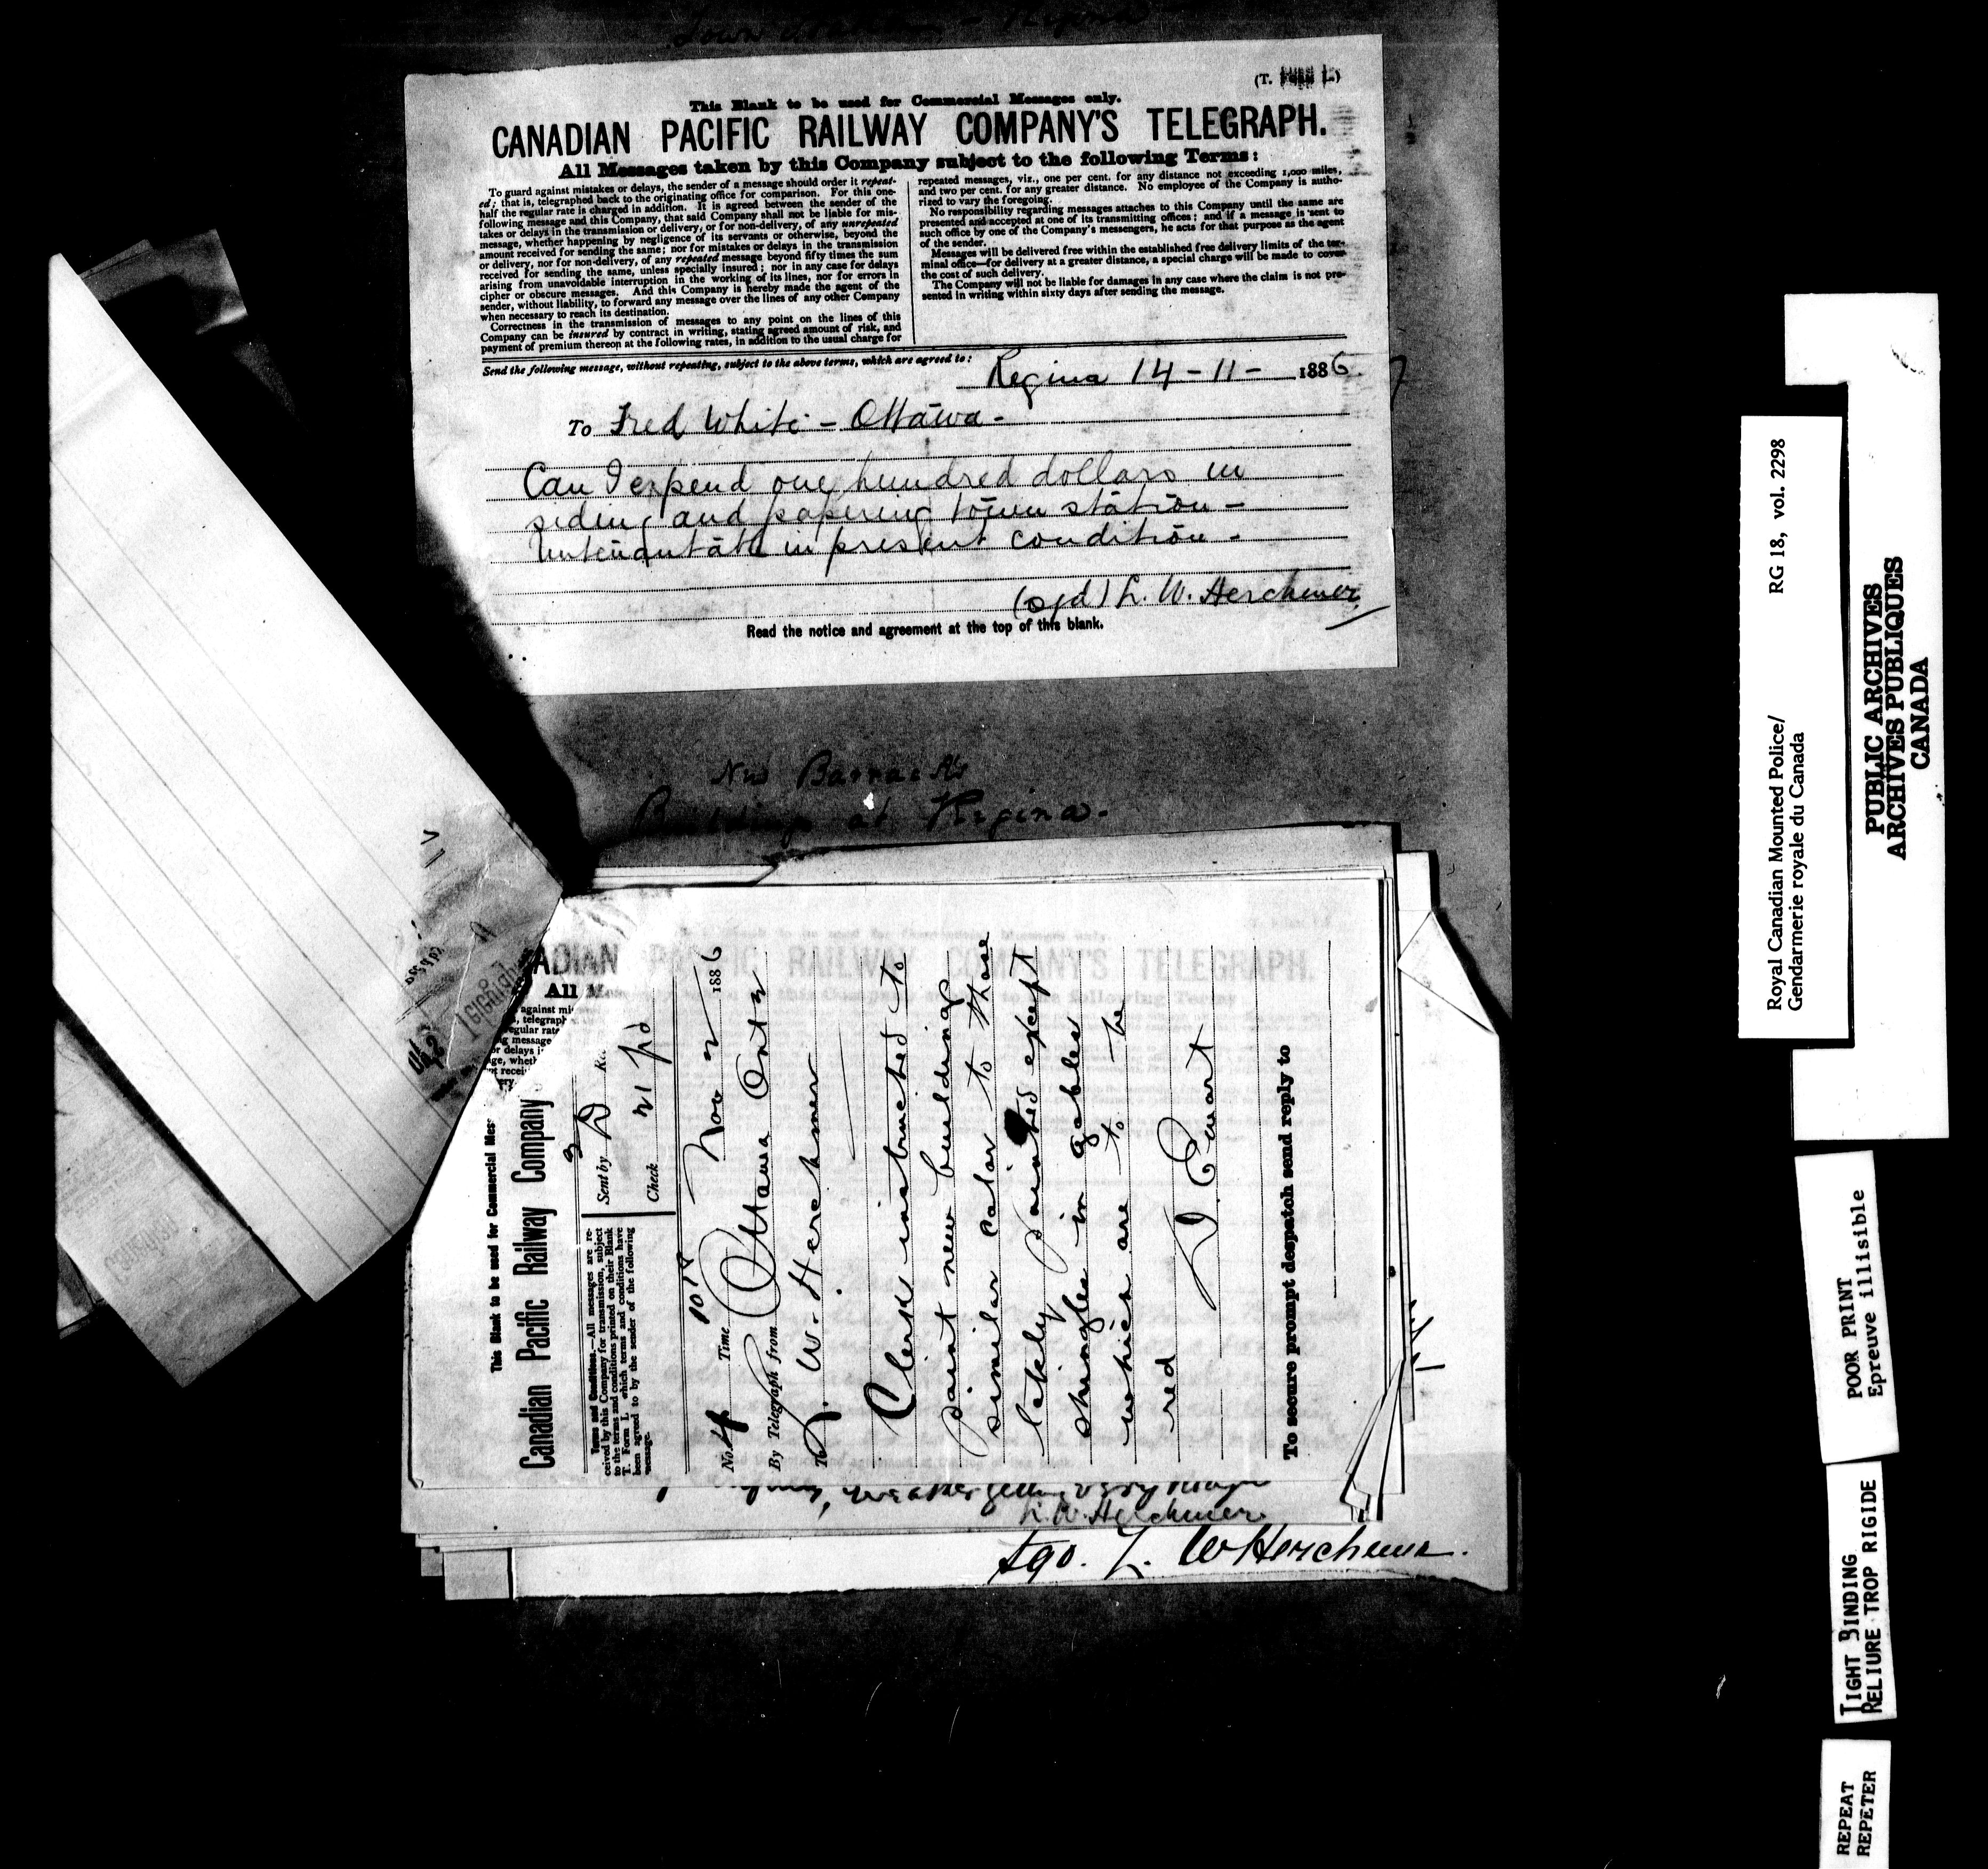 Town Station - Regina
This Blank to be used for Commercial Messages only.
CANADIAN PACIFIC RAILWAY COMPANY'S TELEGRAPH.
All Messages taken by this Company subject to the following Terms:
To guard against mistakes or delays, the sender of a message should order it repeat-
ed; that is, telegraphed back to the originating office for comparison. For this one-
half the regular rate is charged in addition. It is agreed between the sender of the
following message and this Company, that said Company shall not be liable for mis-
takes or delays in the transmission or delivery, or for non-delivery, of any unrepeated
message, whether happening by negligence of its servants or otherwise, beyond the
amount received for sending the same; nor for mistakes or delays in the transmission
or delivery, nor for non-delivery, of any repeated message beyond fifty times the sum
received for sending the same, unless specially insured; nor in any case for delays
arising from unavoidable interruption in the working of its lines, nor for errors in
cipher or obscure messages. And this Company is hereby made the agent of the
sender, without liability, to forward any message over the lines of any other Company
when necessary to reach its destination.
Correctness in the transmission of messages to any point on the lines of this
Company can be insured by contract in writing, stating agreed amount of risk, and
payment of premium thereon at the following rates, in addition to the usual charge for
repeated messages, viz., one per cent. for any distance not exceeding 1,000 miles,
and two per cent. for any greater distance. No employee of the Company is autho-
rized to vary the foregoing.
No responsibility regarding messages attaches to this Company until the same are
presented and accepted at one of its transmitting offices; and if a message is sent to
such office by one of the Company's messengers, he acts for that purpose as the agent
of the sender.
Messages will be delivered free within the established free delivery limits of the ter-
minal office—for delivery at a greater distance, a special charge will be made to cover
the cost of such delivery.
The Company will not be liable for damages in any case where the claim is not pre-
sented in writing within sixty days after sending the message.
Send the following message, without repeating, subject to the above terms, which are agreed to:
Regina 14 - 11 - 1886
To Fred White - Ottawa -
Can I expend one hundred dollars in
siding and papering town station -
Untenantable in present condition -
(sgd) L. W. Herchmer
Read the notice and agreement at the top of this blank.
New Barracks
Buildings at Regina.
This Blank to be used for Commercial Mes
Canadian Pacific Railway Company
Terms and Conditions.—All messages are re-
ceived by this Company for transmission, subject
to the terms and conditions printed on their Blank
T. Form 1., which terms and conditions have
been agreed to by the sender of the following
message.
Sent by D
Check 21 pd
No. 4 Time
Nov 2 1886
By Telegraph from Ottawa Ont 2
To L. W. Herchmer
Clerk instructed to
paint new buildings
similar color to those
lately painted except
shingles in gables
which are to be
red
D. Ewart
To secure prompt despatch send reply to
weather getting very rough
L. W. Herchmer
Sgd. L. W Herchmer.
Royal Canadian Mounted Police/
Gendarmerie royale du Canada
RG 18, vol. 2298
PUBLIC ARCHIVES
ARCHIVES PUBLIQUES
CANADA
POOR PRINT
Epreuve illisible
TIGHT BINDING
RELIURE TROP RIGIDE
REPEAT
REPETER